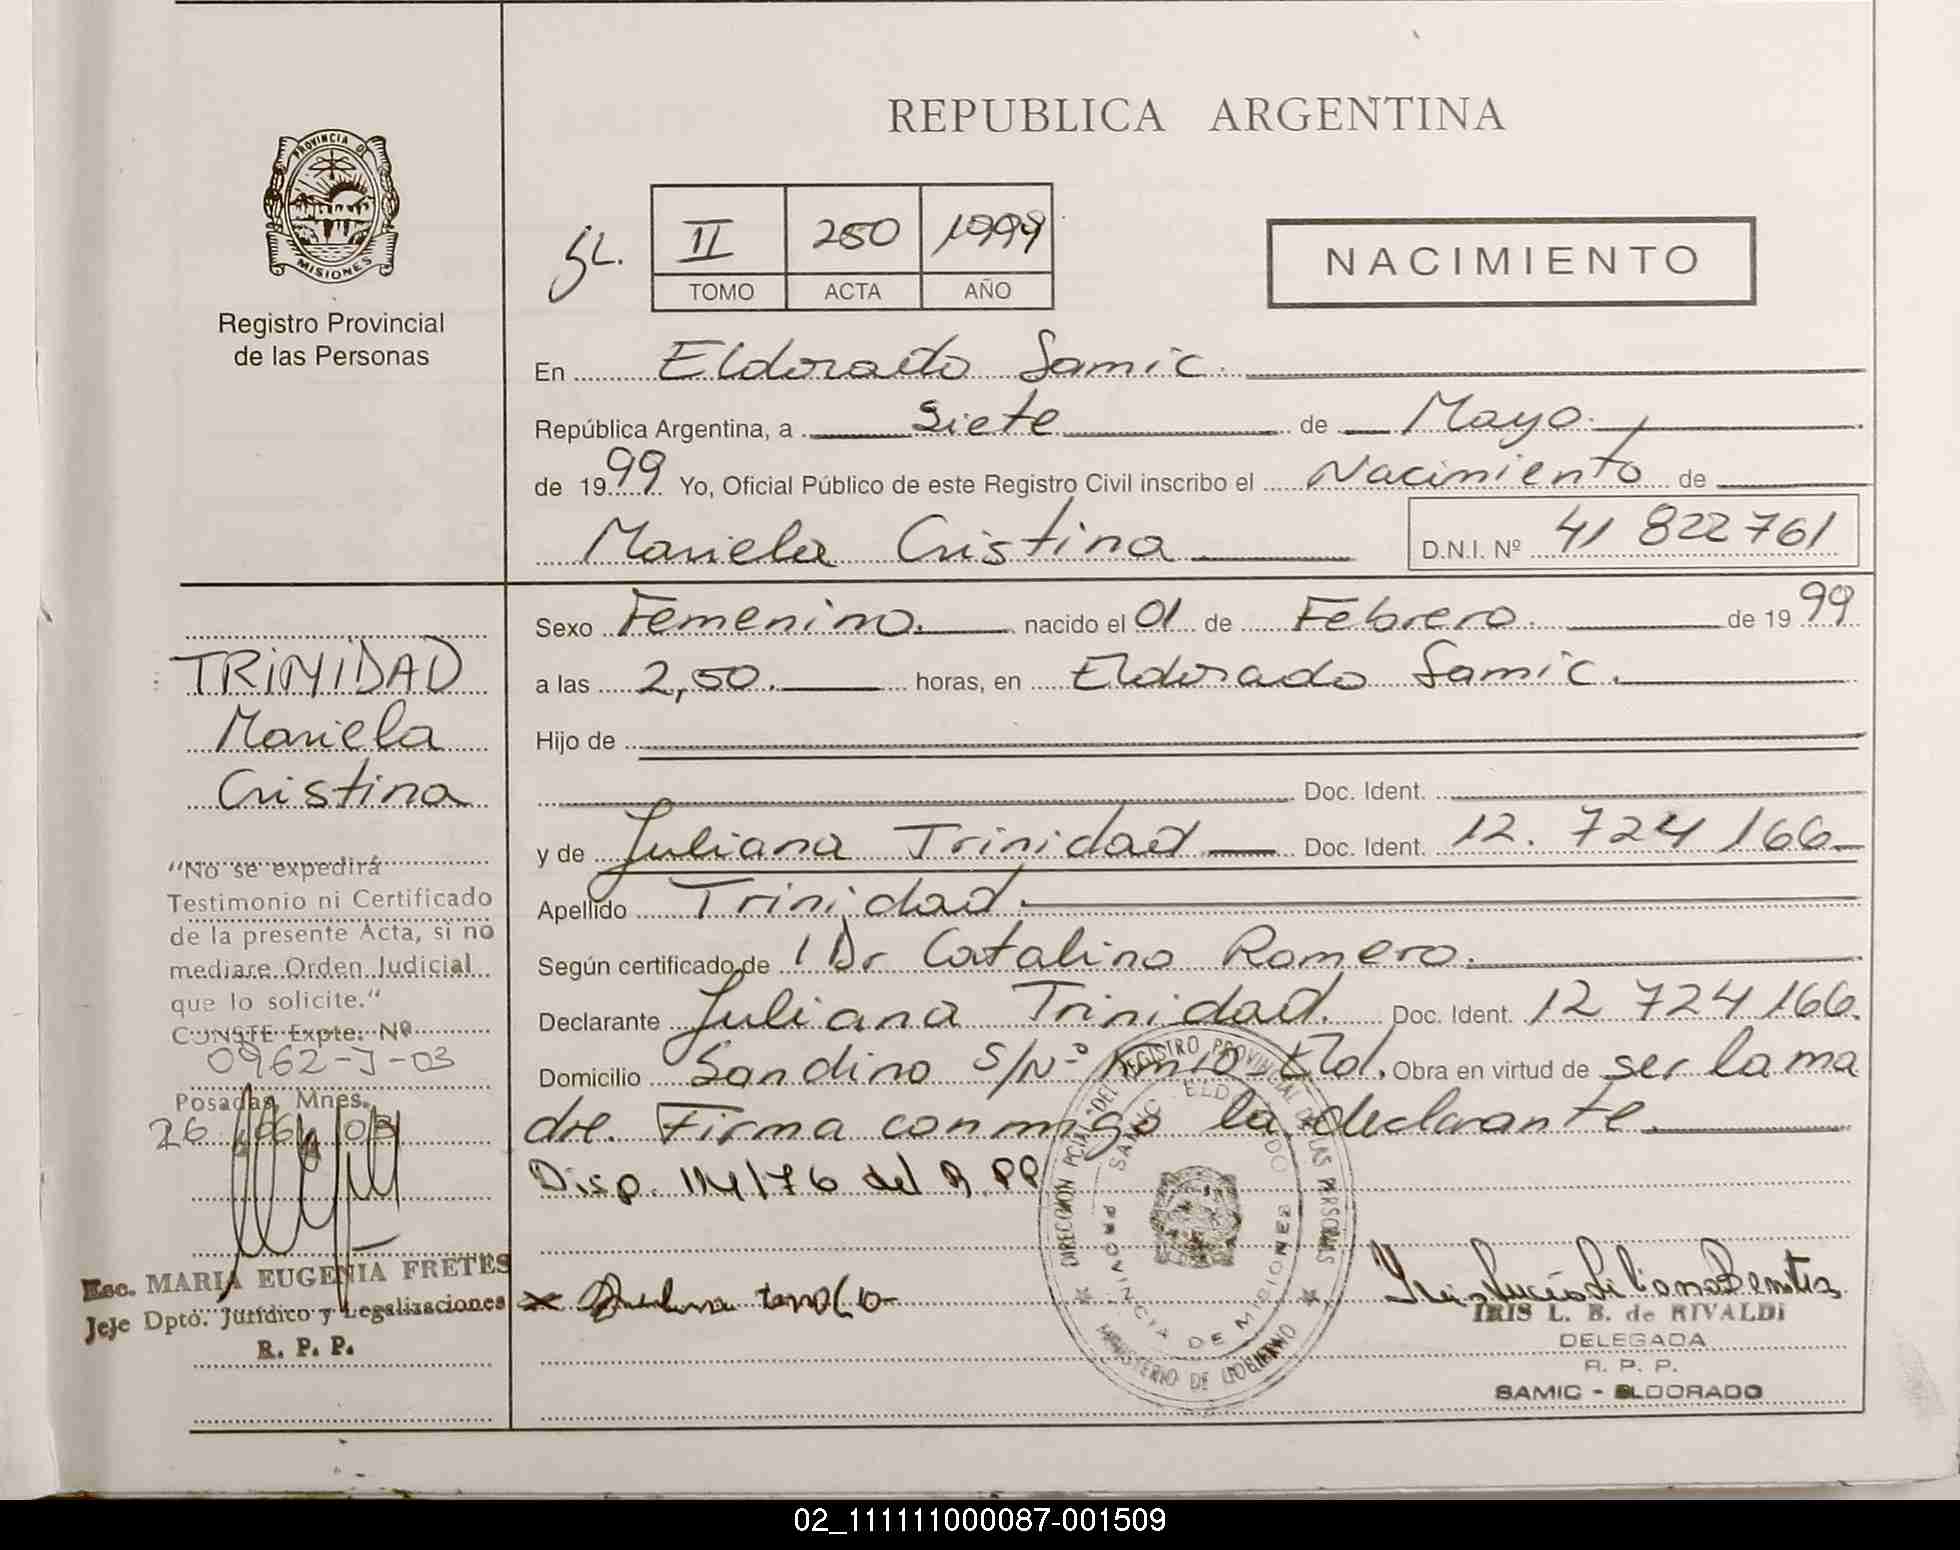 REPUBLICA ARGENTINA
PROVINCIA DE
MISIONES
Registro Provincial
de las Personas
II 250 1999
TOMO ACTA AÑO
NACIMIENTO
En Eldorado Samic.
República Argentina, a siete de Mayo.
de 1999 Yo, Oficial Público de este Registro Civil inscribo el Nacimiento de
Mariela Cristina D.N.I. Nº 41 822761
Sexo Femenino. nacido el 01 de Febrero. de 1999
a las 2,50. horas, en Eldorado Samic.
Hijo de
Doc. Ident.
y de Juliana Trinidad Doc. Ident. 12.724166
Apellido Trinidad.
Según certificado de Dr Catalino Romero.
Declarante Juliana Trinidad. Doc. Ident. 12 724166.
Domicilio Sandino S/Nº Eld. Obra en virtud de ser la ma
dre. Firma conmigo la declarante.
Disp. 114/76 del R.PP
TRINIDAD
Mariela
Cristina
"No se expedirá
Testimonio ni Certificado
de la presente Acta, si no
mediare Orden Judicial
que lo solicite."
CONSTE Expte. Nº
0962-J-03
Posadas, Mnes.
26 06 03
Esc. MARIA EUGENIA FRETES
Jefe Dptó. Jurídico y Legalizaciones
R. P. P.
DIRECCION PCIAL DEL REGISTRO PROVINCIAL DE LAS PERSONAS
MINISTERIO DE GOBIERNO
SAMIC ELDORADO
PROVINCIA DE MISIONES
IRIS L. B. de RIVALDI
DELEGADA
R. P. P.
SAMIC - ELDORADO
02_111111000087-001509